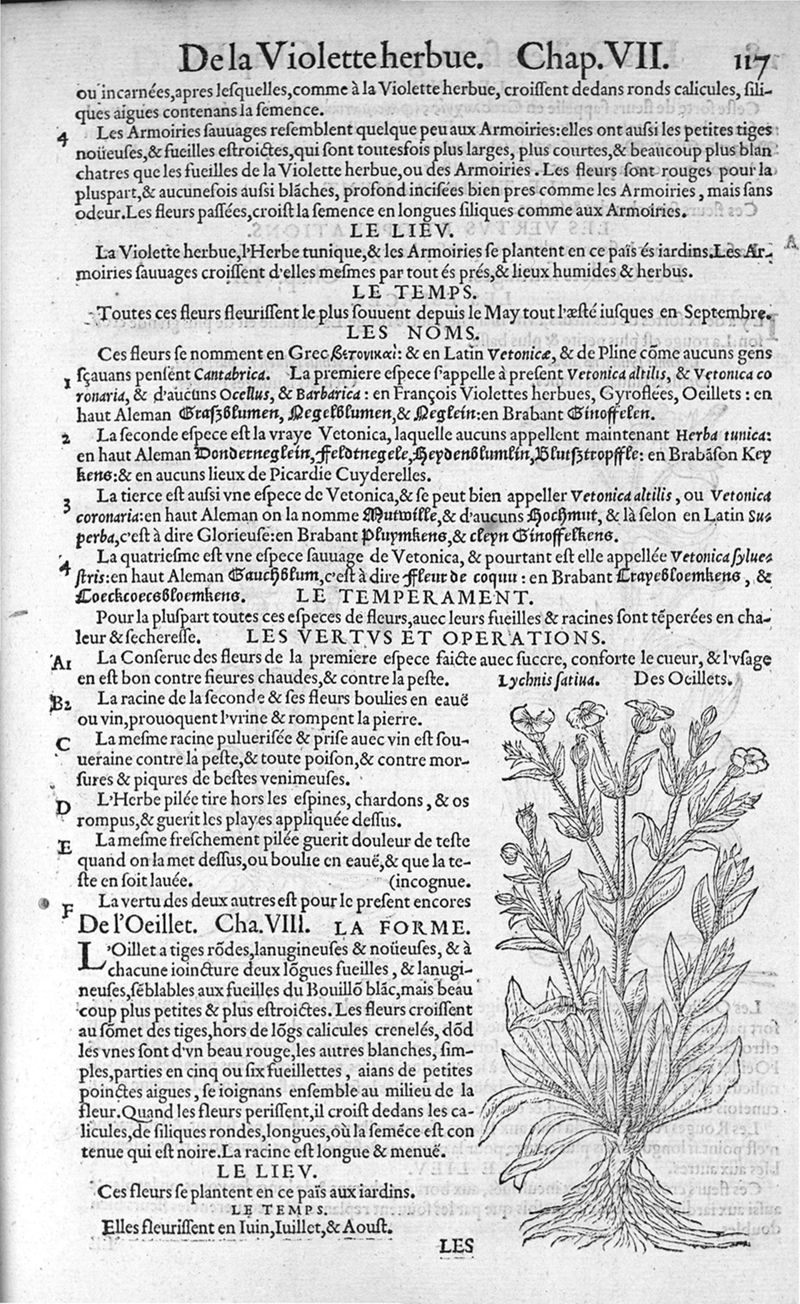 De la Violette herbue. Chap. VII. 117
ou incarnées, apres lesquelles, comme à la Violette herbue, croissent dedans ronds calicules, sili-
ques aigues contenans la semence.
4 Les Armoiries sauuages resemblent quelque peu aux Armoiries: elles ont aussi les petites tiges
noüeuses, & fueilles estroictes, qui sont toutesfois plus larges, plus courtes, & beaucoup plus blan
chatres que les fueilles de la Violette herbue, ou des Armoiries. Les fleurs sont rouges pour la
pluspart, & aucunesfois aussi blãches, profond incisées bien pres comme les Armoiries, mais sans
odeur. Les fleurs passées, croist la semence en longues siliques comme aux Armoiries.
LE LIEV.
La Violette herbue, l'Herbe tunique, & les Armoiries se plantent en ce païs és iardins. Les Ar- A
moiries sauuages croissent d'elles mesmes par tout és prés, & lieux humides & herbus.
LE TEMPS.
Toutes ces fleurs fleurissent le plus souuent depuis le May tout l'æsté iusques en Septembre.
LES NOMS.
Ces fleurs se nomment en Grec βετονικαὶ: & en Latin Vetonicæ, & de Pline cõme aucuns gens
sçauans pensent Cantabrica. La premiere espece s'appelle à present Vetonica altilis, & Vetonica co
1 ronaria, & d'aucuns Ocellus, & Barbarica: en François Violettes herbues, Gyroflées, Oeillets: en
haut Aleman Graszblumen, Negelblumen, & Neglein: en Brabant Ginoffelen.
2 La seconde espece est la vraye Vetonica, laquelle aucuns appellent maintenant Herba tunica:
en haut Aleman Donderneglein, Feldtnegele, Heydenblumlin, Blutsztropffle: en Brabãson Key
kens: & en aucuns lieux de Picardie Cuyderelles.
3 La tierce est aussi vne espece de Vetonica, & se peut bien appeller Vetonica altilis, ou Vetonica
coronaria: en haut Aleman on la nomme Mutwille, & d'aucuns Hochmut, & là selon en Latin Su-
perba, c'est à dire Glorieuse: en Brabant Pluymkens, & cleyn Ginoffelkens.
4 La quatriesme est vne espece sauuage de Vetonica, & pourtant est elle appellée Vetonica syluе-
stris: en haut Aleman Gauchblum, c'est à dire Fleur de coquu: en Brabant Crayebloemkens, &
Coeckcoecsbloemkens. LE TEMPERAMENT.
Pour la pluspart toutes ces especes de fleurs, auec leurs fueilles & racines sont tẽperées en cha-
leur & secheresse. LES VERTVS ET OPERATIONS.
A1 La Conserue des fleurs de la premiere espece faicte auec succre, conforte le cueur, & l'vsage
en est bon contre fieures chaudes, & contre la peste. Lychnis satiua. Des Oeillets.
B2 La racine de la seconde & ses fleurs boulies en eauë
ou vin, prouoquent l'vrine & rompent la pierre.
C La mesme racine puluerisée & prise auec vin est sou-
ueraine contre la peste, & toute poison, & contre mor-
sures & piqures de bestes venimeuses.
D L'Herbe pilée tire hors les espines, chardons, & os
rompus, & guerit les playes appliquée dessus.
E La mesme freschement pilée guerit douleur de teste
quand on la met dessus, ou boulie en eauë, & que la te-
ste en soit lauée. (incognue.
F La vertu des deux autres est pour le present encores
De l'Oeillet. Cha. VIII. LA FORME.
L'Oillet a tiges rõdes, lanugineuses & noüeuses, & à
chacune ioincture deux lõgues fueilles, & lanugi-
neuses, sẽblables aux fueilles du Bouillõ blãc, mais beau
coup plus petites & plus estroictes. Les fleurs croissent
au sõmet des tiges, hors de lõgs calicules crenelés, dõd
les vnes sont d'vn beau rouge, les autres blanches, sim-
ples, parties en cinq ou six fueillettes, aians de petites
poinctes aigues, se ioignans ensemble au milieu de la
fleur. Quand les fleurs perissent, il croist dedans les ca-
licules, de siliques rondes, longues, où la semẽce est con
tenue qui est noire. La racine est longue & menuë.
LE LIEV.
Ces fleurs se plantent en ce païs aux iardins.
LE TEMPS.
Elles fleurissent en Iuin, Iuillet, & Aoust.
LES